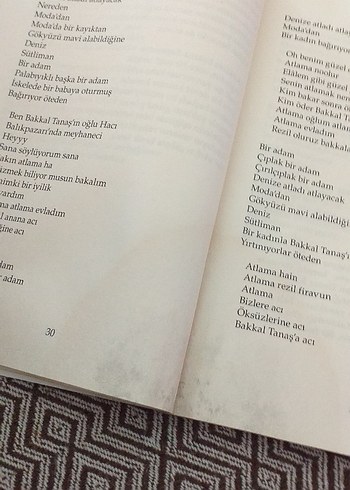 atlayacak
Nereden
Moda'dan
Moda'da bir kayıktan
Gökyüzü mavi alabildiğine
Deniz
Sütliman
Bir adam
Palabıyıklı başka bir adam
İskelede bir babaya oturmuş
Bağırıyor öteden
Ben Bakkal Tanaş'ın oğlu Hacı
Balıkpazarı'nda meyhaneci
Heyyy
Sana söylüyorum sana
akın atlama ha
üzmek biliyor musun bakalım
nimki bir iyilik
yardım
na atlama evladım
l anana acı
ğine acı
dam
r adam
30
Denize atladı atlay
Moda'dan
Bir kadın bağırıyo
Oh benim güzel
Atlama noolur
Elâlem gibi güzel
Senin atlamak ne
Kim bakar sonra
Kim öder Bakkal T
Atlama oğlum atla
Atlama evladım
Rezil oluruz bakkala
Bir adam
Çıplak bir adam
Çırılçıplak bir adam
Denize atladı atlayacak
Moda'dan
Gökyüzü mavi alabildiği
Deniz
Sütliman
Bir kadınla Bakkal Tanaş'ı
Yırtınıyorlar öteden
Atlama hain
Atlama rezil firavun
Atlama
Bizlere acı
Öksüzlerine acı
Bakkal Tanaş'a acı